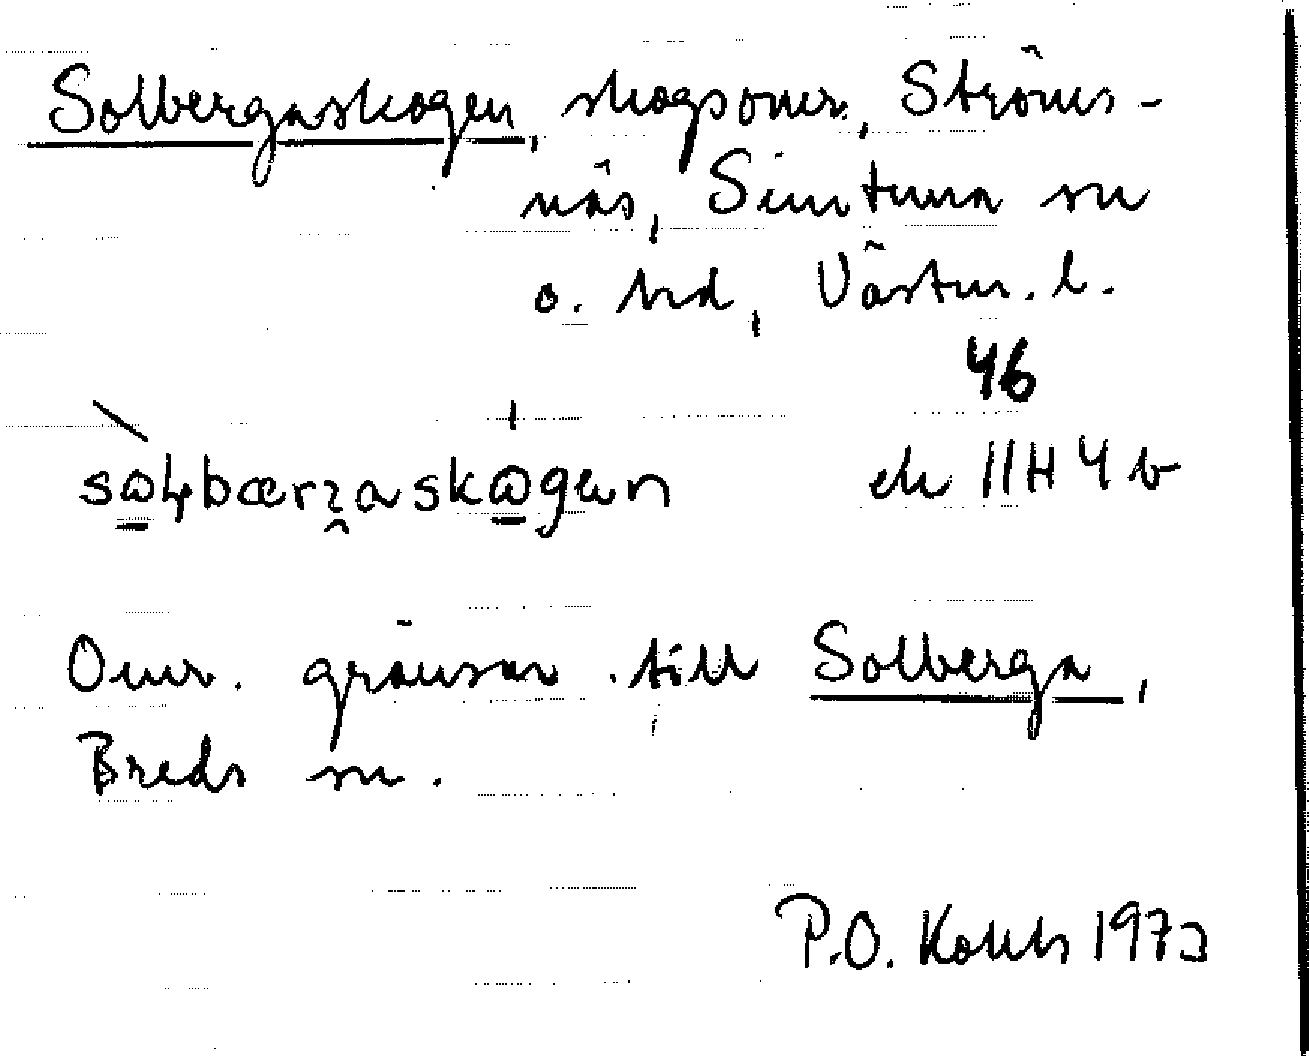 Solbergaskogen, skogsomr., Ströms-
näs, Simtuna sn
o. hd, Västm. l.
46
ek 11H 4b
Omr. gränsar till Solberga,
Breds sn.
P.O. 197